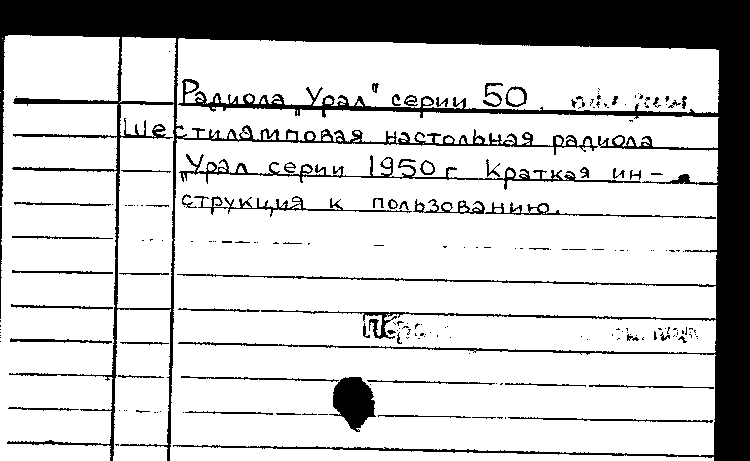 Радиола „Урал" серии 50.
Шестиламповая настольная радиола
„Урал серии 1950 г Краткая ин-
струкция к пользованию.